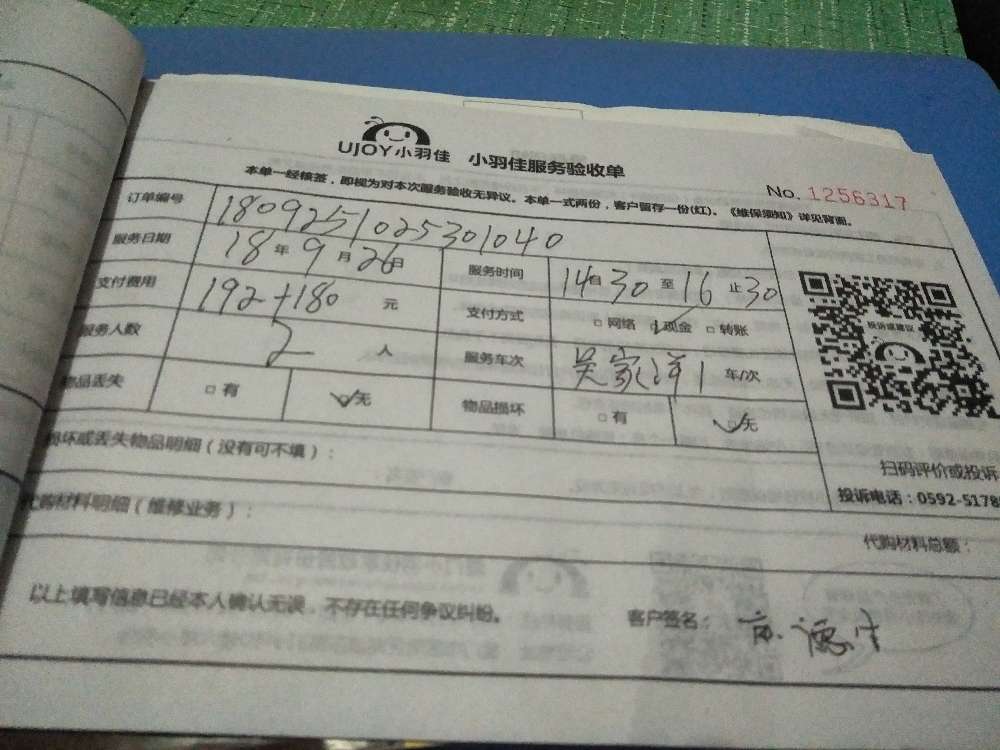 UJOY小羽佳 小羽佳服务验收单
No. 1256317
本单一经核签，即视为对本次服务验收无异议。本单一式两份，客户留存一份(红)。《维保须知》详见背面。
订单编号 1809251025301040
服务日期 18年9月26日 服务时间 14时30至16止30
支付费用 192+180 元 支付方式 □网络 ☑现金 □转账
服务人数 2 人 服务车次 吴家洋1 车/次
物品丢失 □有 ☑无 物品损坏 □有 ☑无
投诉或建议
扫码评价或投诉
投诉电话：0592-5178
损坏或丢失物品明细（没有可不填）：
代购材料明细（维修业务）：
代购材料总额：
以上填写信息已经本人确认无误，不存在任何争议纠纷。 客户签名：